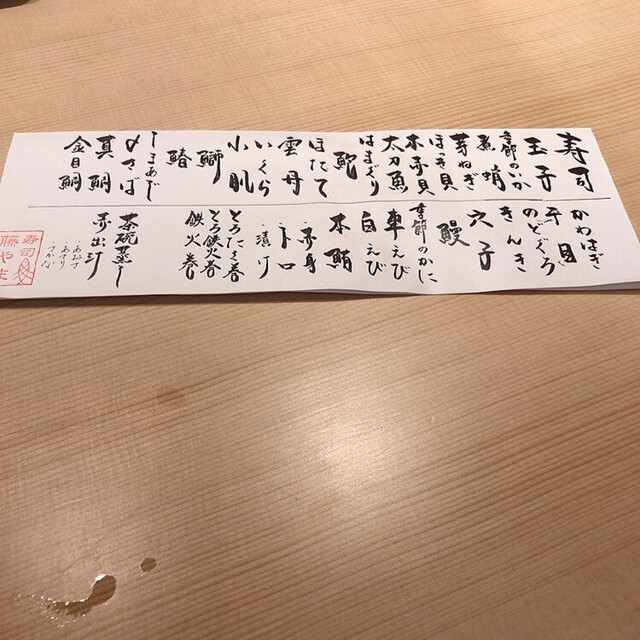 寿司
玉子
季節のいか
煮蛸
芽ねぎ
ほき貝
本赤貝
太刀魚
はまぐり
鮑
ほたて
雲丹
いくら
小肌
鰤
鰆
しまあじ
〆さば
真鯛
金目鯛
かわはぎ
平目
のどぐろ
きんき
穴子
鰻
季節のかに
車えび
白えび
本鮪
・赤身
・トロ
・漬け
とろたく巻
とろ鉄火巻
鉄火巻
茶碗蒸し
赤出汁
・あおさ
・あさり
・さかな
寿司
藤やま